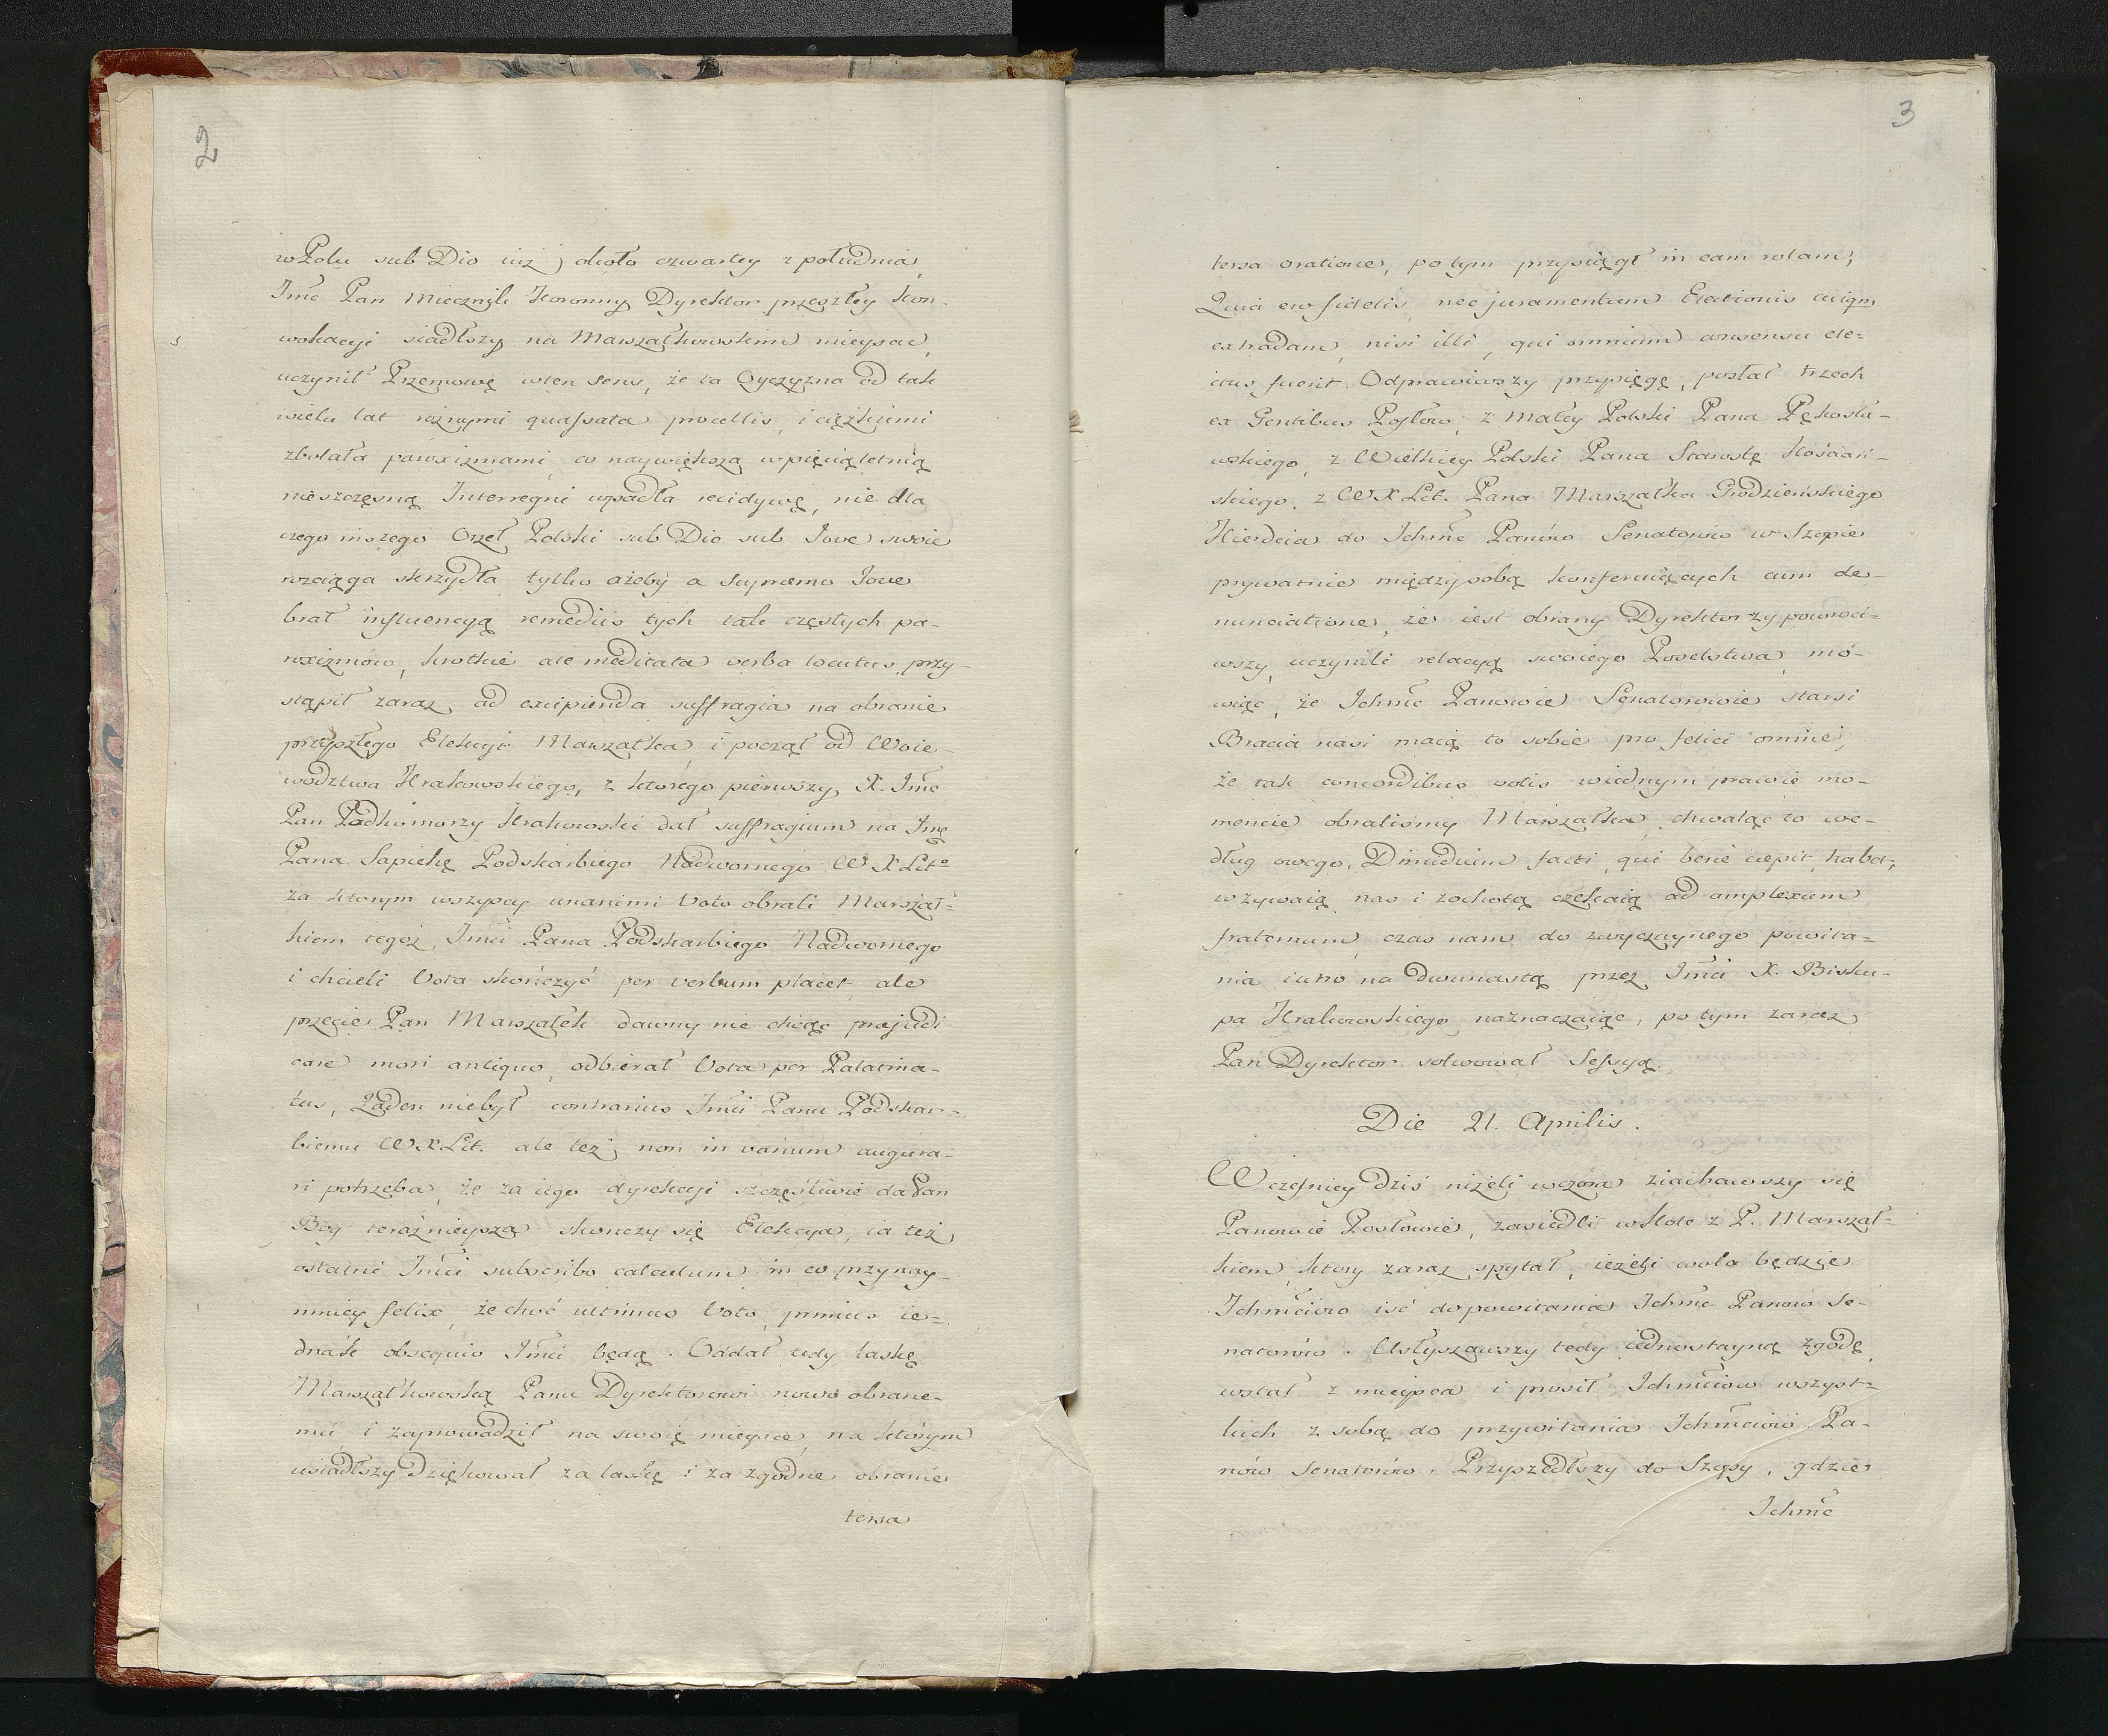 2
w Polu sub Dio iuż około czwartey z południa,
Imć Pan Miecznik Koronny Dyrektor przeszłey Kon-
wokacyi siadłszy na Marszałkowskim mieyscu,
uczynił Przemowę w ten sens, że ta Oyczyzna od tak
wielu lat rożnymi quassata procellis, i ciężkiemi
zbolała paroxizmami, co naywiększa w pięcią letnią
nieszczęsną Interregni wpadła recidywę, nie dla
czego inszego Orzeł Polski sub Dio sub Iove swoie
rozciąga skrzydła tylko ażeby a Supremo Iove
brał influencyą remediis tych tak częstych pa-
roxizmow, krotkie ale meditata verba locutus, przy-
stąpił zaraz ad excipienda suffragia na obranie
przyszłego Elekcyi Marszałka, i począł od Woie-
wodztwa Krakowskiego, z ktorego pierwszy X. Imć
Pan Podkomorzy Krakowski dał suffragium na Imę
Pana Sapiehę Podskarbiego Nadwornego W X Lito
za ktorym wszyscy unanimi Voto obrali Marszał=
kiem tegoż Imci Pana Podskarbiego Nadwornego
i chcieli Vota skończyć per verbum placet, ale
przecie Pan Marszałek dawny nie chcąc præjudi-
care mori antiquo, odbierał Vota per Palatina-
tus, Żaden niebył contrarius Imci Panu Podskar=
biemu W X Lit. ale też non in vanum augura-
ri potrzeba, że za iego dyrekcyi szczęśliwie da Pan
Bog teraźnieysza skonczy się Elekcya, ia też
ostatni Imci subscribo calculum in eo przynay-
mniey felix, że choć ultimus Voto, primus ie=
dnak obsequio Imci będę. Oddał tedy laskę
Marszałkowską Panu Dyrektorowi nowo obrane-
mu i zaprowadził na swoię mieysce, na którym
usiadłszy Dziękował za laskę i za zgodne obranie
tersa
3
tersa oratione, po tym przysiągł in eam rotam;
Quia ero fidelis, nec juramentum Electionis cuiqm
extradam, nisi illi, qui omnium consensu ele=
ctus fuerit. Odprawiwszy przysięgę, posłał trzech
ex Gentibus Posłow, z Małey Polski Pana Pękosła-
wskiego, z Wielkiey Polski Pana Starostę Kościań-
skiego, z W X Lit. Pana Marszałka Grodzieńskiego
Kierdeia do Ichmć Panów Senatorów w Szopie
prywatnie między sobą konferuiących cum de-
nunciatione, że iest obrany Dyrektor. Ci powroci=
wszy uczynili relacyą swoiego Poselstwa, mó-
wiąc, że Ichmć Panowie Senatorowie starsi
Bracia nasi maią to sobie pro felici omine,
że tak concordibus votis w iednym prawie mo-
mencie obraliśmy Marszałka, chwaląc to we-
dług owego. Dimidium facti, qui bene cepit, habet,
wzywaią nas i z ochotą czekaią ad amplexum
fraternum, czas nam do zwyczaynego powita=
nia iutro na dwunastą przez Imci X. Bisku-
pa Krakowskiego naznaczaiąc, po tym zaraz
Pan Dyrektor solwował Sessyą.
Die 21. Aprilis.
Wczesniey dziś niżeli wczora ziachawszy się
Panowie Posłowie, zasiedli w Kole z P. Marszał-
kiem, ktory zaraz spytał, ieżeli wola będzie
Ichmciów iść do powitania Ichmć Panow Se-
natorów. Usłyszawszy tedy iednostayną zgodę,
wstał z mieysca i prosił Ichmciow wszyst=
kich z sobą do przywitania Ichmciów Pa-
nów Senatorów. Przyszedłszy do Szopy, gdzie
Ichmć